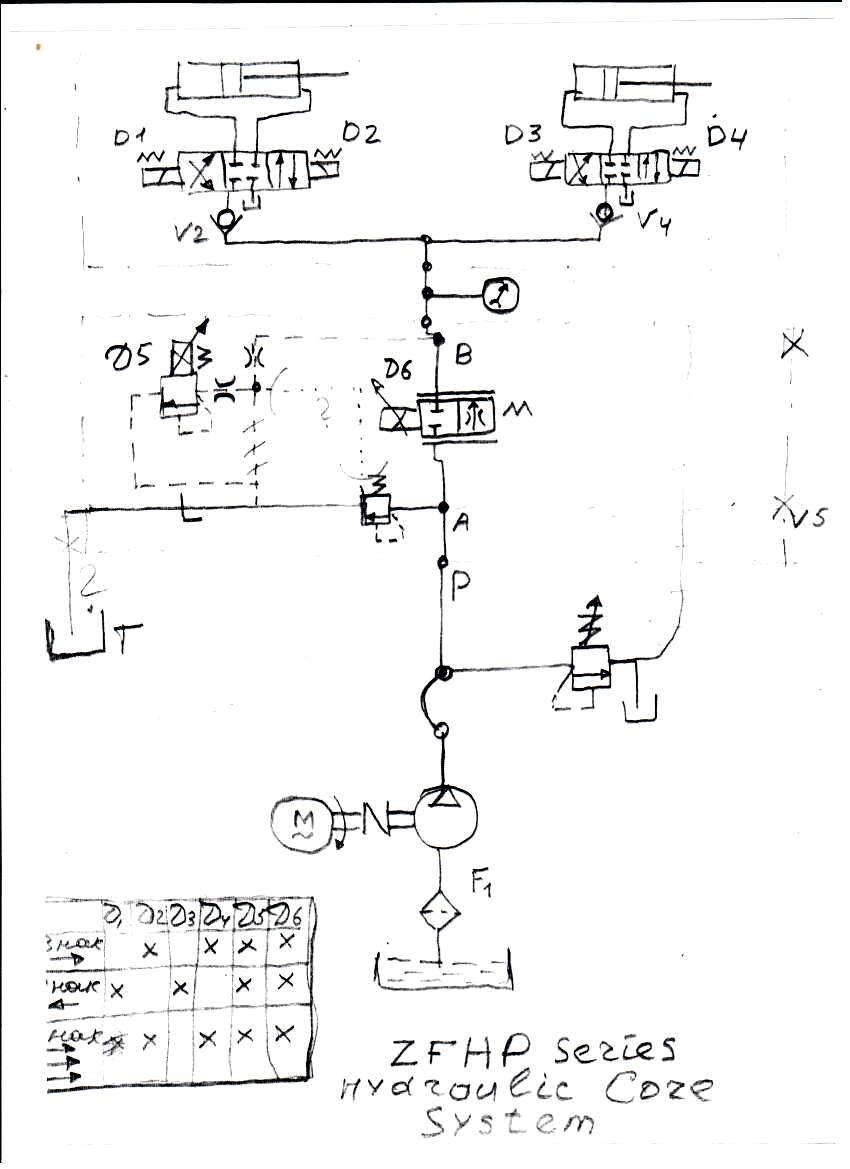 D1
D2
D3
D4
V2
V4
B
D5
D6
?
M
A
V5
P
2
T
M
N
F1
D1 D2 D3 D4 D5 D6
знак
x x x x
нак x x x x
нак x x x x x
ZFHP series
Hydraulic Core
System